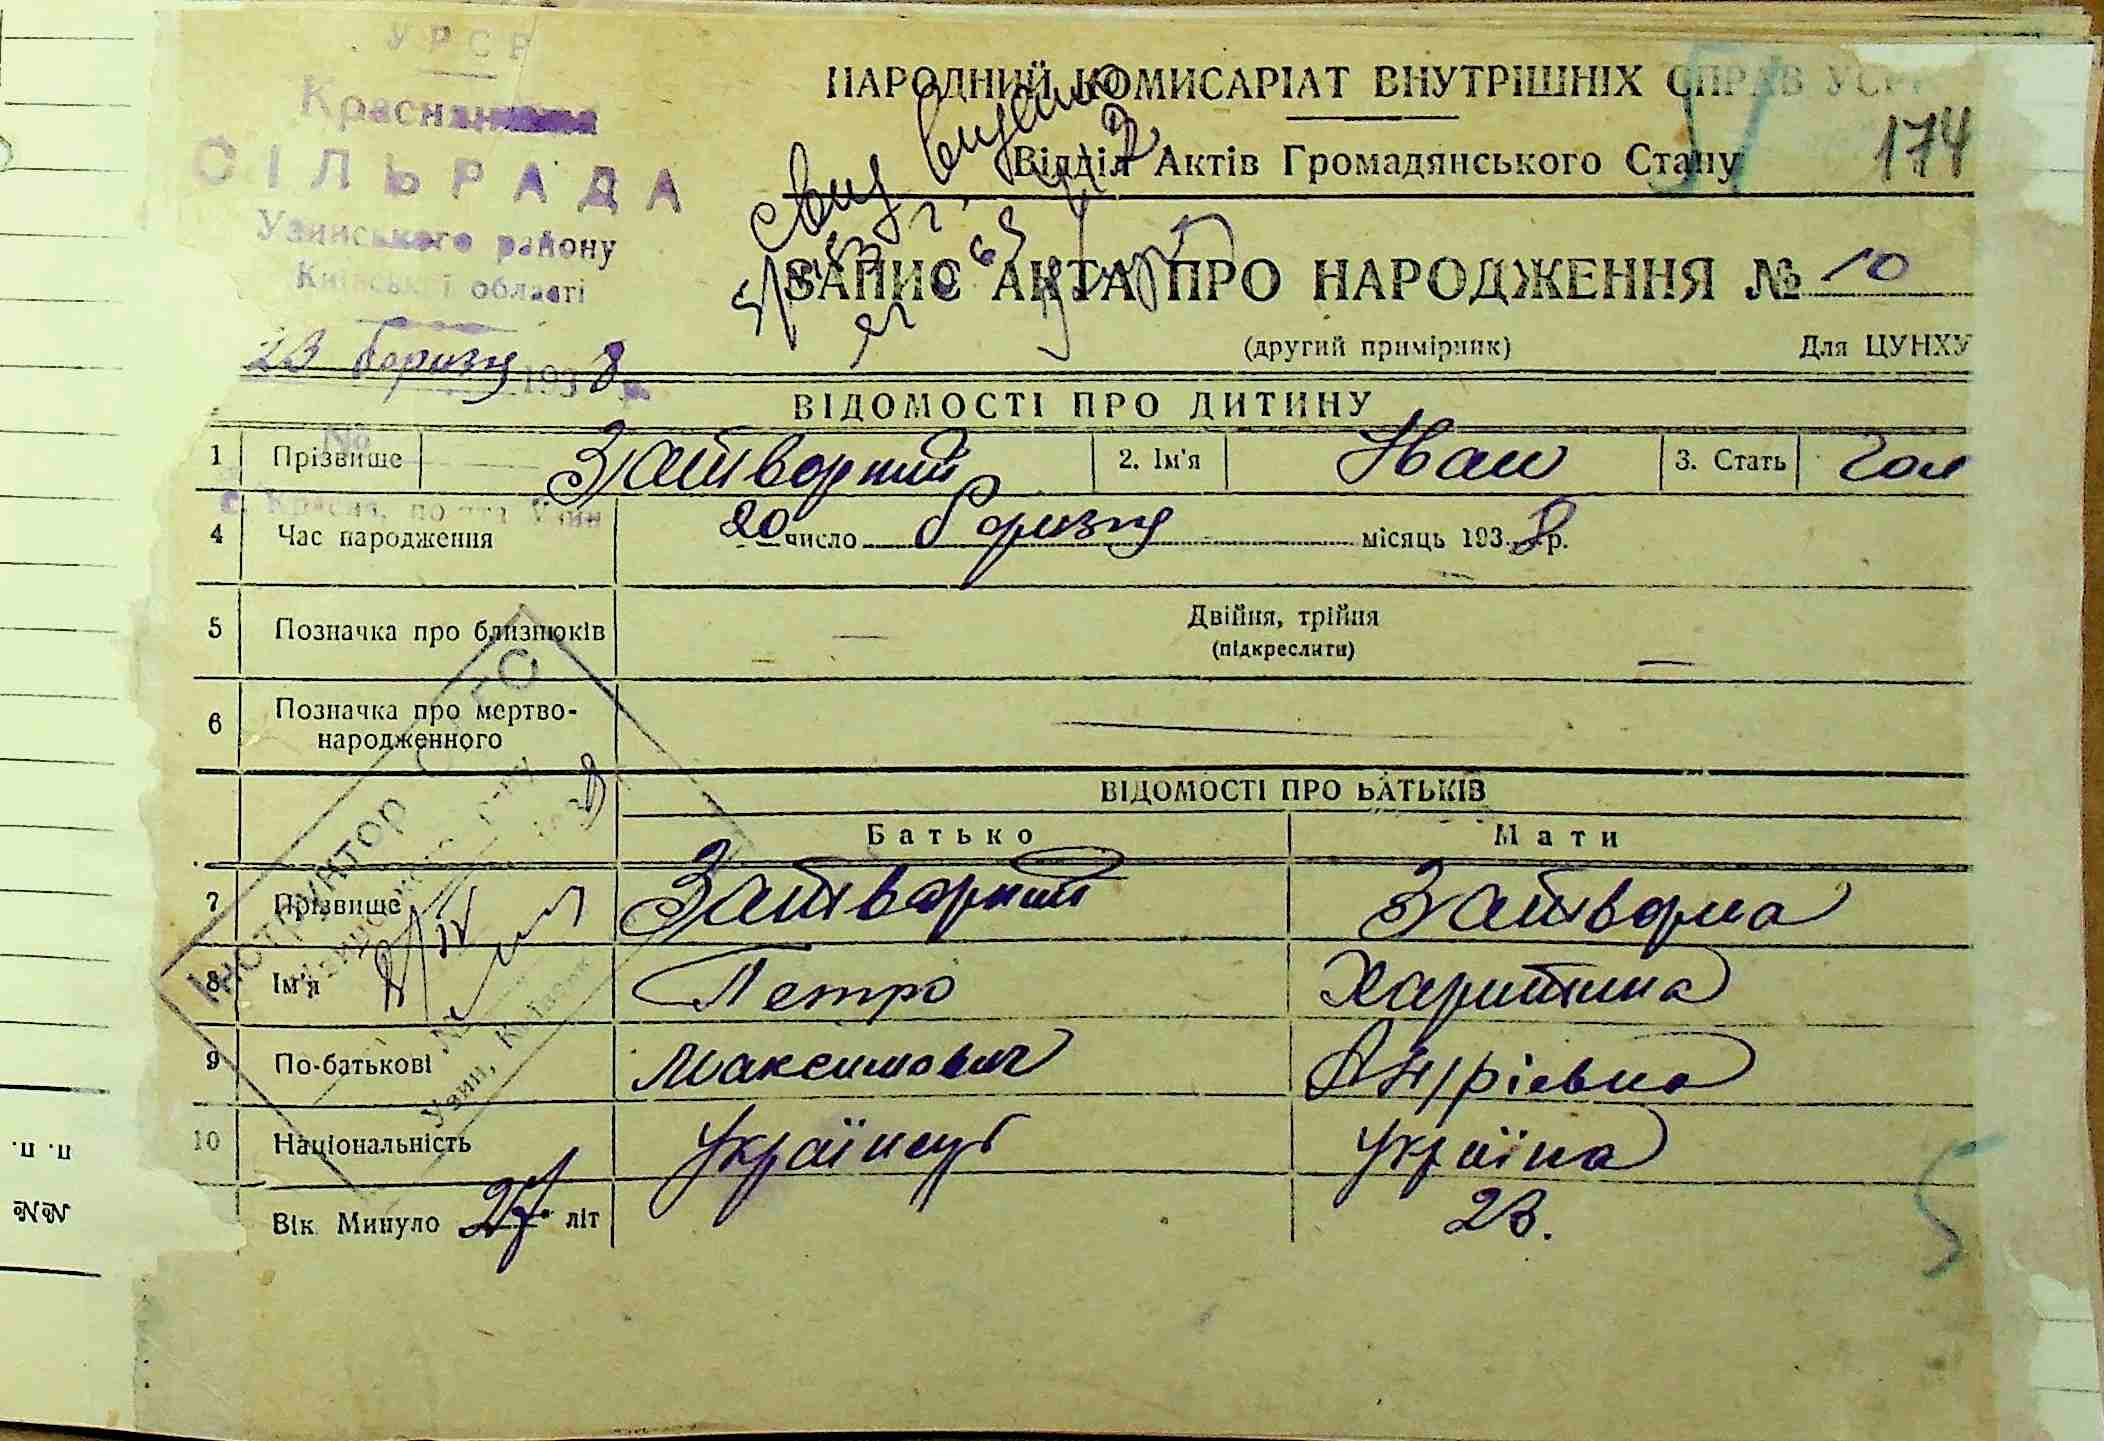 УРСР
Красна
СІЛЬРАДА
Узинського району
Київської області
23 березня 1938 р.
№
с. Красна, пошта Узин
НАРОДНИЙ КОМИСАРІАТ ВНУТРІШНІХ СПРАВ УСРР
Відділ Актів Громадянського Стану
174
ЗАПИС АКТА ПРО НАРОДЖЕННЯ № 10
(другий примірник) Для ЦУНХУ
ВІДОМОСТІ ПРО ДИТИНУ
1 Прізвище Затворний 2. Ім'я Иван 3. Стать Чол
4 Час народження 20 число березня місяць 1938 р.
5 Позначка про близнюків — Двійня, трійня
(підкреслити) —
6 Позначка про мертво-
народженного —
ВІДОМОСТІ ПРО БАТЬКІВ
Батько Мати
7 Прізвище Затворний Затворна
8 Ім'я Петро Харитина
9 По-батькові Максимович Андрієвна
10 Національність Українець Україна
Вік Минуло 27 літ 23.
Інструктор
Узин, Київськ
п. п.
№№